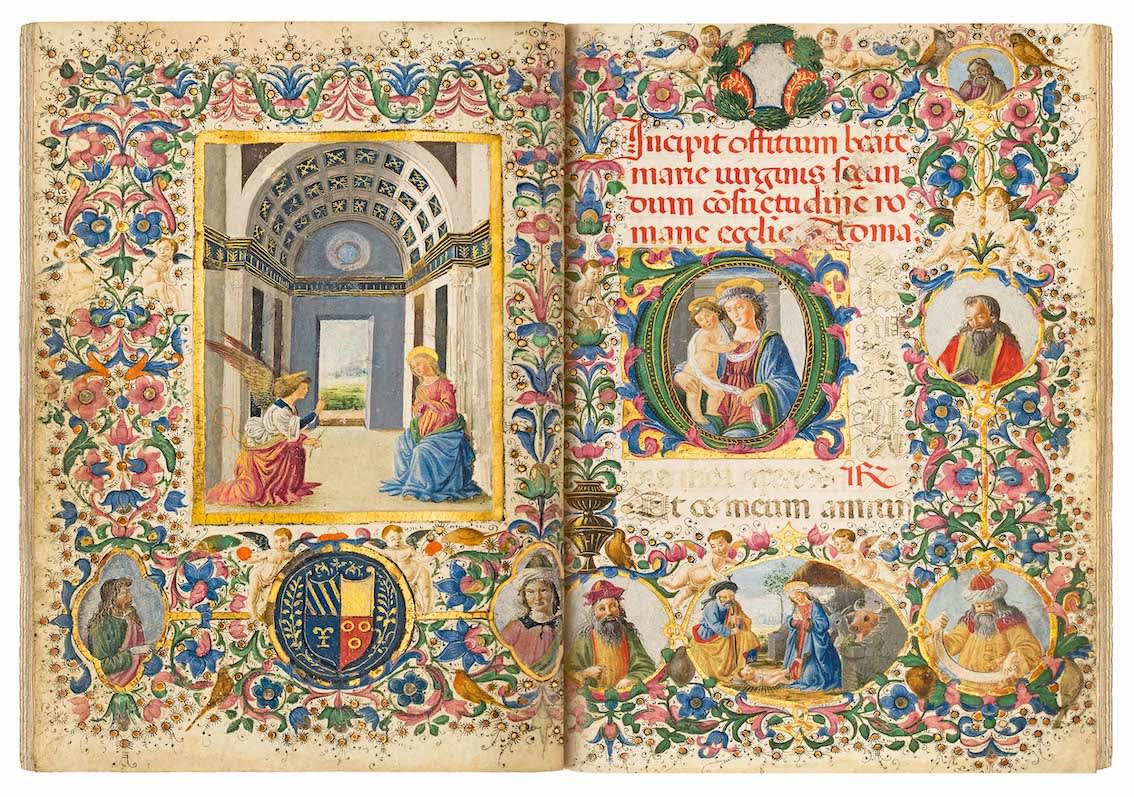 Incipit offitium beate
marie uirginis secun
dum cōsuetudine ro
mane ecclie Roma.
Et os meum annun